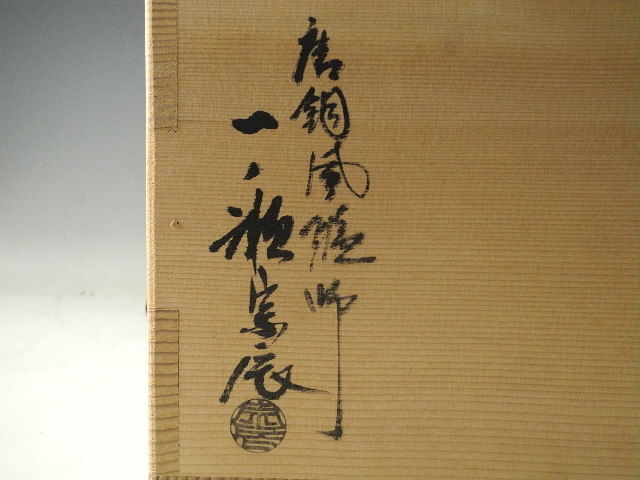 唐銅風炉師
一ノ瀬宗辰